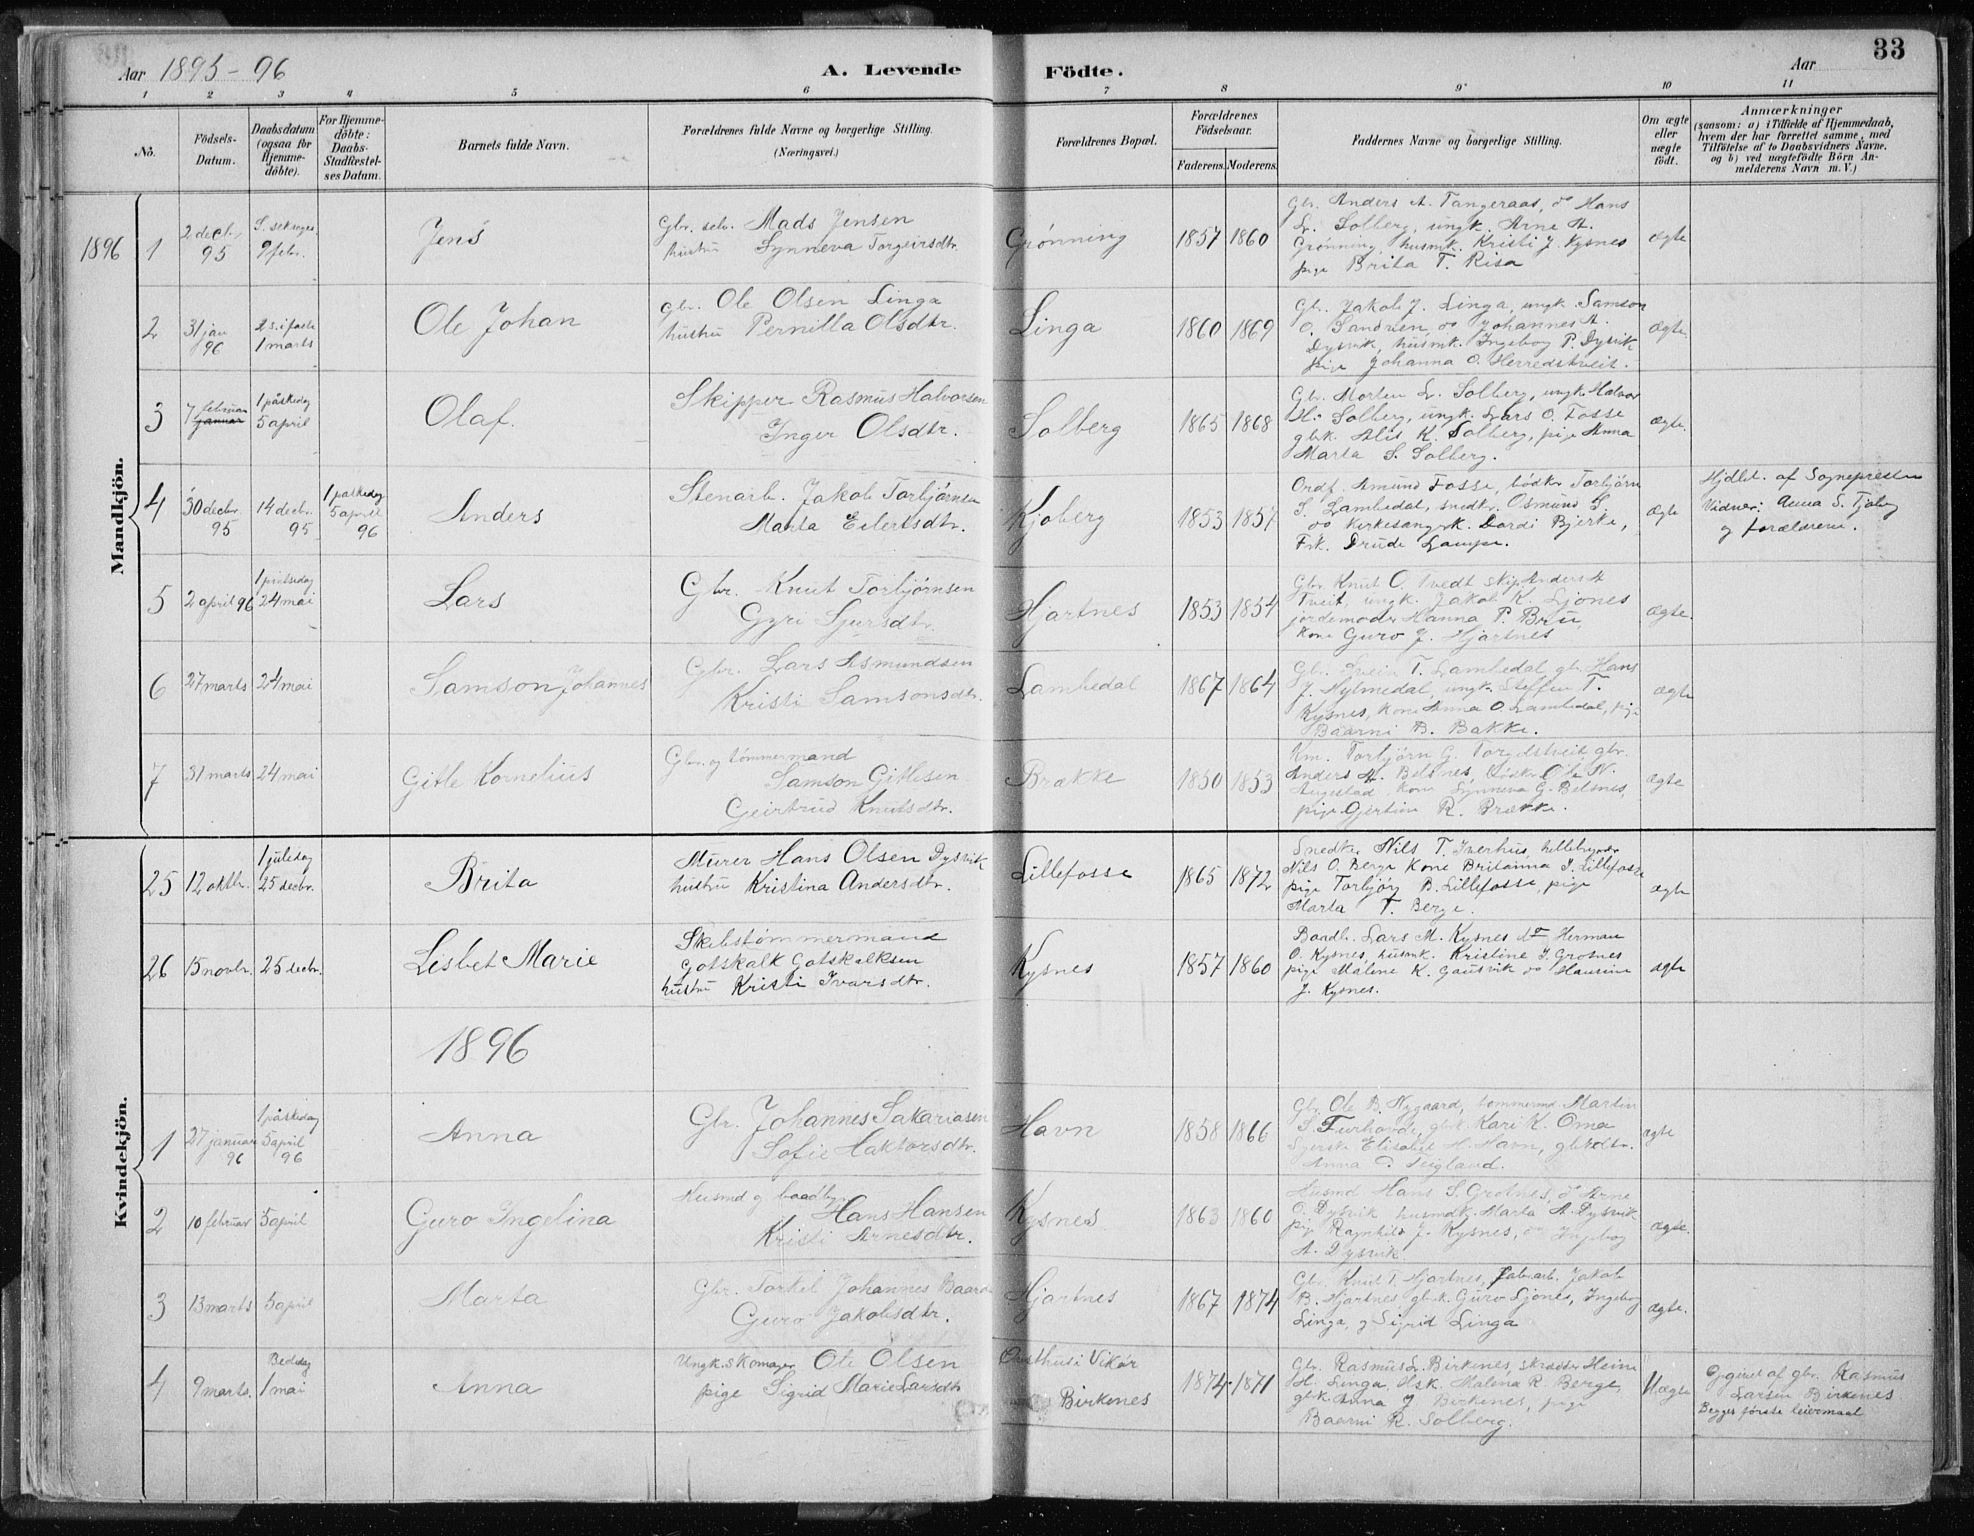 33
Aar 1895-96
A. Levende Födte.
Aar
1 2 3 4 5 6 7 8 9 10 11
No.
Födsels-
Datum.
Daabsdatum
(ogsaa for
Hjemme-
döbte).
For Hjemme-
döbte:
Daabs-
Stadfæstel-
ses Datum.
Barnets fulde Navn.
Forældrenes fulde Navne og borgerlige Stilling.
(Næringsvei.)
Forældrenes Bopæl.
Forældrenes
Födselsaar.
Faderens. Moderens.
Faddernes Navne og borgerlige Stilling.
Om ægte
eller
uægte
födt.
Anmærkninger
(saasom: a) i Tilfælde af Hjemmedaab,
hvem der har forrettet samme, med
Tilföielse af to Daabsvidners Navne,
og b) ved uægtefödte Börn An-
melderens Navn m. V.)
Mandkjön.
1896
1
2 decb.
95
S. seksages.
9 febr.
Jens
Gbr. selv. Mads Jensen
hustru Synneva Torgeirsdtr.
Grønning
1857 1860
Gbr. Anders A. Tangeraas, do Hans
L. Solberg, ungk. Arne A.
Grønning, husmk. Kristi J. Kysnes
pige Brita T. Risa
ægte
2
31 jan
96
2 s. i faste
1 marts
Ole Johan
Gbr. Ole Olsen Linga
hustru Pernilla Olsdtr.
Linga
1860 1869
Gbr. Jakob J. Linga, ungk. Samson
O. Sandven, do Johannes A.
Dysvik, husmk. Ingebog P. Dysvik
pige Johanna O. Herredstveit.
ægte.
3
7 februar
januar
1 påskedag
5 april
Olaf.
Skipper Rasmus Halvorsen
Inger Olsdtr.
Solberg
1865 1868
Gbr. Morten L. Solberg, ungk. Halvor
H. Solberg, ungk. Lars O. Fosse
gbk. Alis K. Solberg, pige Anna
Marta S. Solberg.
ægte.
4
30 decbr.
95
14 decbr.
95
1 påskedag
5 april
96
Anders
Stenarb. Jakob Torbjørnsen
Marta Eilertsdtr.
Kjoberg
1853 1857
Ordf. Amund Fosse, bødkr Torbjørn
S. Lambedal, snedkr. Osmund S.
do Kirkesangerk. Dordi Bjerke,
Frk. Drude Lampe.
ægte
Hjdbt. af Sognepresten
Vidner: Anna S. Tjoberg
og forældrene.
5
2 april 96
1 pintsedag
24 mai
Lars
Gbr. Knut Torbjørnsen
Gyri Sjursdtr.
Hjartnes
1853 1854
Gbr. Knut O. Tvedt skip. Anders A
Tveit, ungk. Jakob K. Ljones
jordemoder Hanna P. Bru,
kone Guro J. Hjartnes
ægte.
6
27 marts
24 mai
Samson Johannes
Gbr. Lars Asmundsen
Kristi Samsonsdtr.
Lambedal
1867 1864
Gbr. Svein T. Lambedal, gbr. Hans
J. Nylmedal, ungk. Steffen T.
Kysnes, kone Anna O. Lambedal, pige
Baarni B. Bakke.
ægte
7
31 marts
24 mai
Gitle Kornelius
Gbr. og tømmermand
Samson Gitlesen
Geirtrud Knutsdtr.
Brække
1850 1853
Km. Torbjørn G. Torgilstveit gbr.
Anders A. Belsnes, bødkr Ole N.
Augestad, kone Synneva G. Belsnes,
pige Gjertine R. Brække.
ægte
Kvindekjön.
25
12 oktbr.
1 juledag
25 decbr.
Brita
Murer Hans Olsen Dysvik
hustru Kristina Andersdtr.
Lillefosse
1865 1872
Snedkr. Nils T. Iverhus,
Nils O. Berge Kone Britanna J. Lillefosse
pige Torbjørg B. Lillefosse, pige
Marta T. Berge.
ægte
26
15 novbr.
25 decbr.
Lisbet Marie
Skibstømmermand
Gotskalk Gotskalksen
hustru Kristi Ivarsdtr.
Kysnes
1857 1860
Baadb. Lars M. Kysnes do Herman
O. Kysnes, husmk. Kristine J. Grotnes
pige Malene K. Gausvik do Hansine
J. Kysnes.
ægte
1896
1
27 januar
96
1 påskedag
5 april
96
Anna
Gbr. Johannes Sakariasen
Sofie Haktorsdtr.
Havn
1858 1866
Gbr. Ole B. Nygaard, tømmermd Martin
S. Furhovde, gbk Kari K. Oma
Syerske Elisabet H. Havn, gbkdtr.
Anna D. Teigland.
ægte
2
10 februar
5 april
Guro Ingelina
Husmd og baadbyg.
Hans Hansen
Kristi Arnesdtr.
Kysnes
1863 1860
Husmd Hans S. Grotnes, do Arne
O. Dysvik husmdk. Marta A. Dysvik
pige Ragnhild J. Kysnes, do Ingebog
A. Dysvik
ægte.
3
13 marts
5 april
Marta
Gbr. Torkel Johannes Baards
Guro Jakobsdtr.
Hjartnes
1867 1874
Gbr. Knut T. Hjartnes, fabr.arb. Jakob
B. Hjartnes gbk. Guro Ljones, Ingebog
Linga, og Sigrid Linga
ægte.
4
9 marts.
Bededag
1 mai
Anna
Ungk. skomager Ole Olsen
pige Sigrid Marie Larsdtr
Østhusi Vikør
Birkenes
1874 1871
Gbr. Rasmus L. Birkenes, skrædder Heine
H. Linga, Hsk. Malena R. Berge,
gbk. Anna J Birkenes, pige
Baarni R. Solberg.
Uægte
Opgivet af gbr. Rasmus
Larsen Birkenes
Begges første leiermaal